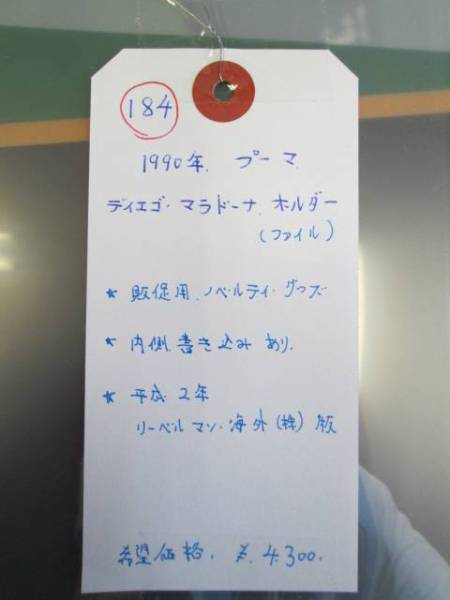 184
1990年. プーマ.
ディエゴ・マラドーナ. ホルダー
(ファイル)
★ 販促用. ノベルティ・グッズ
★ 内側. 書き込みあり.
★ 平成. 2年
リーベルマン・海外(株)版
希望価格. ¥.4.300.